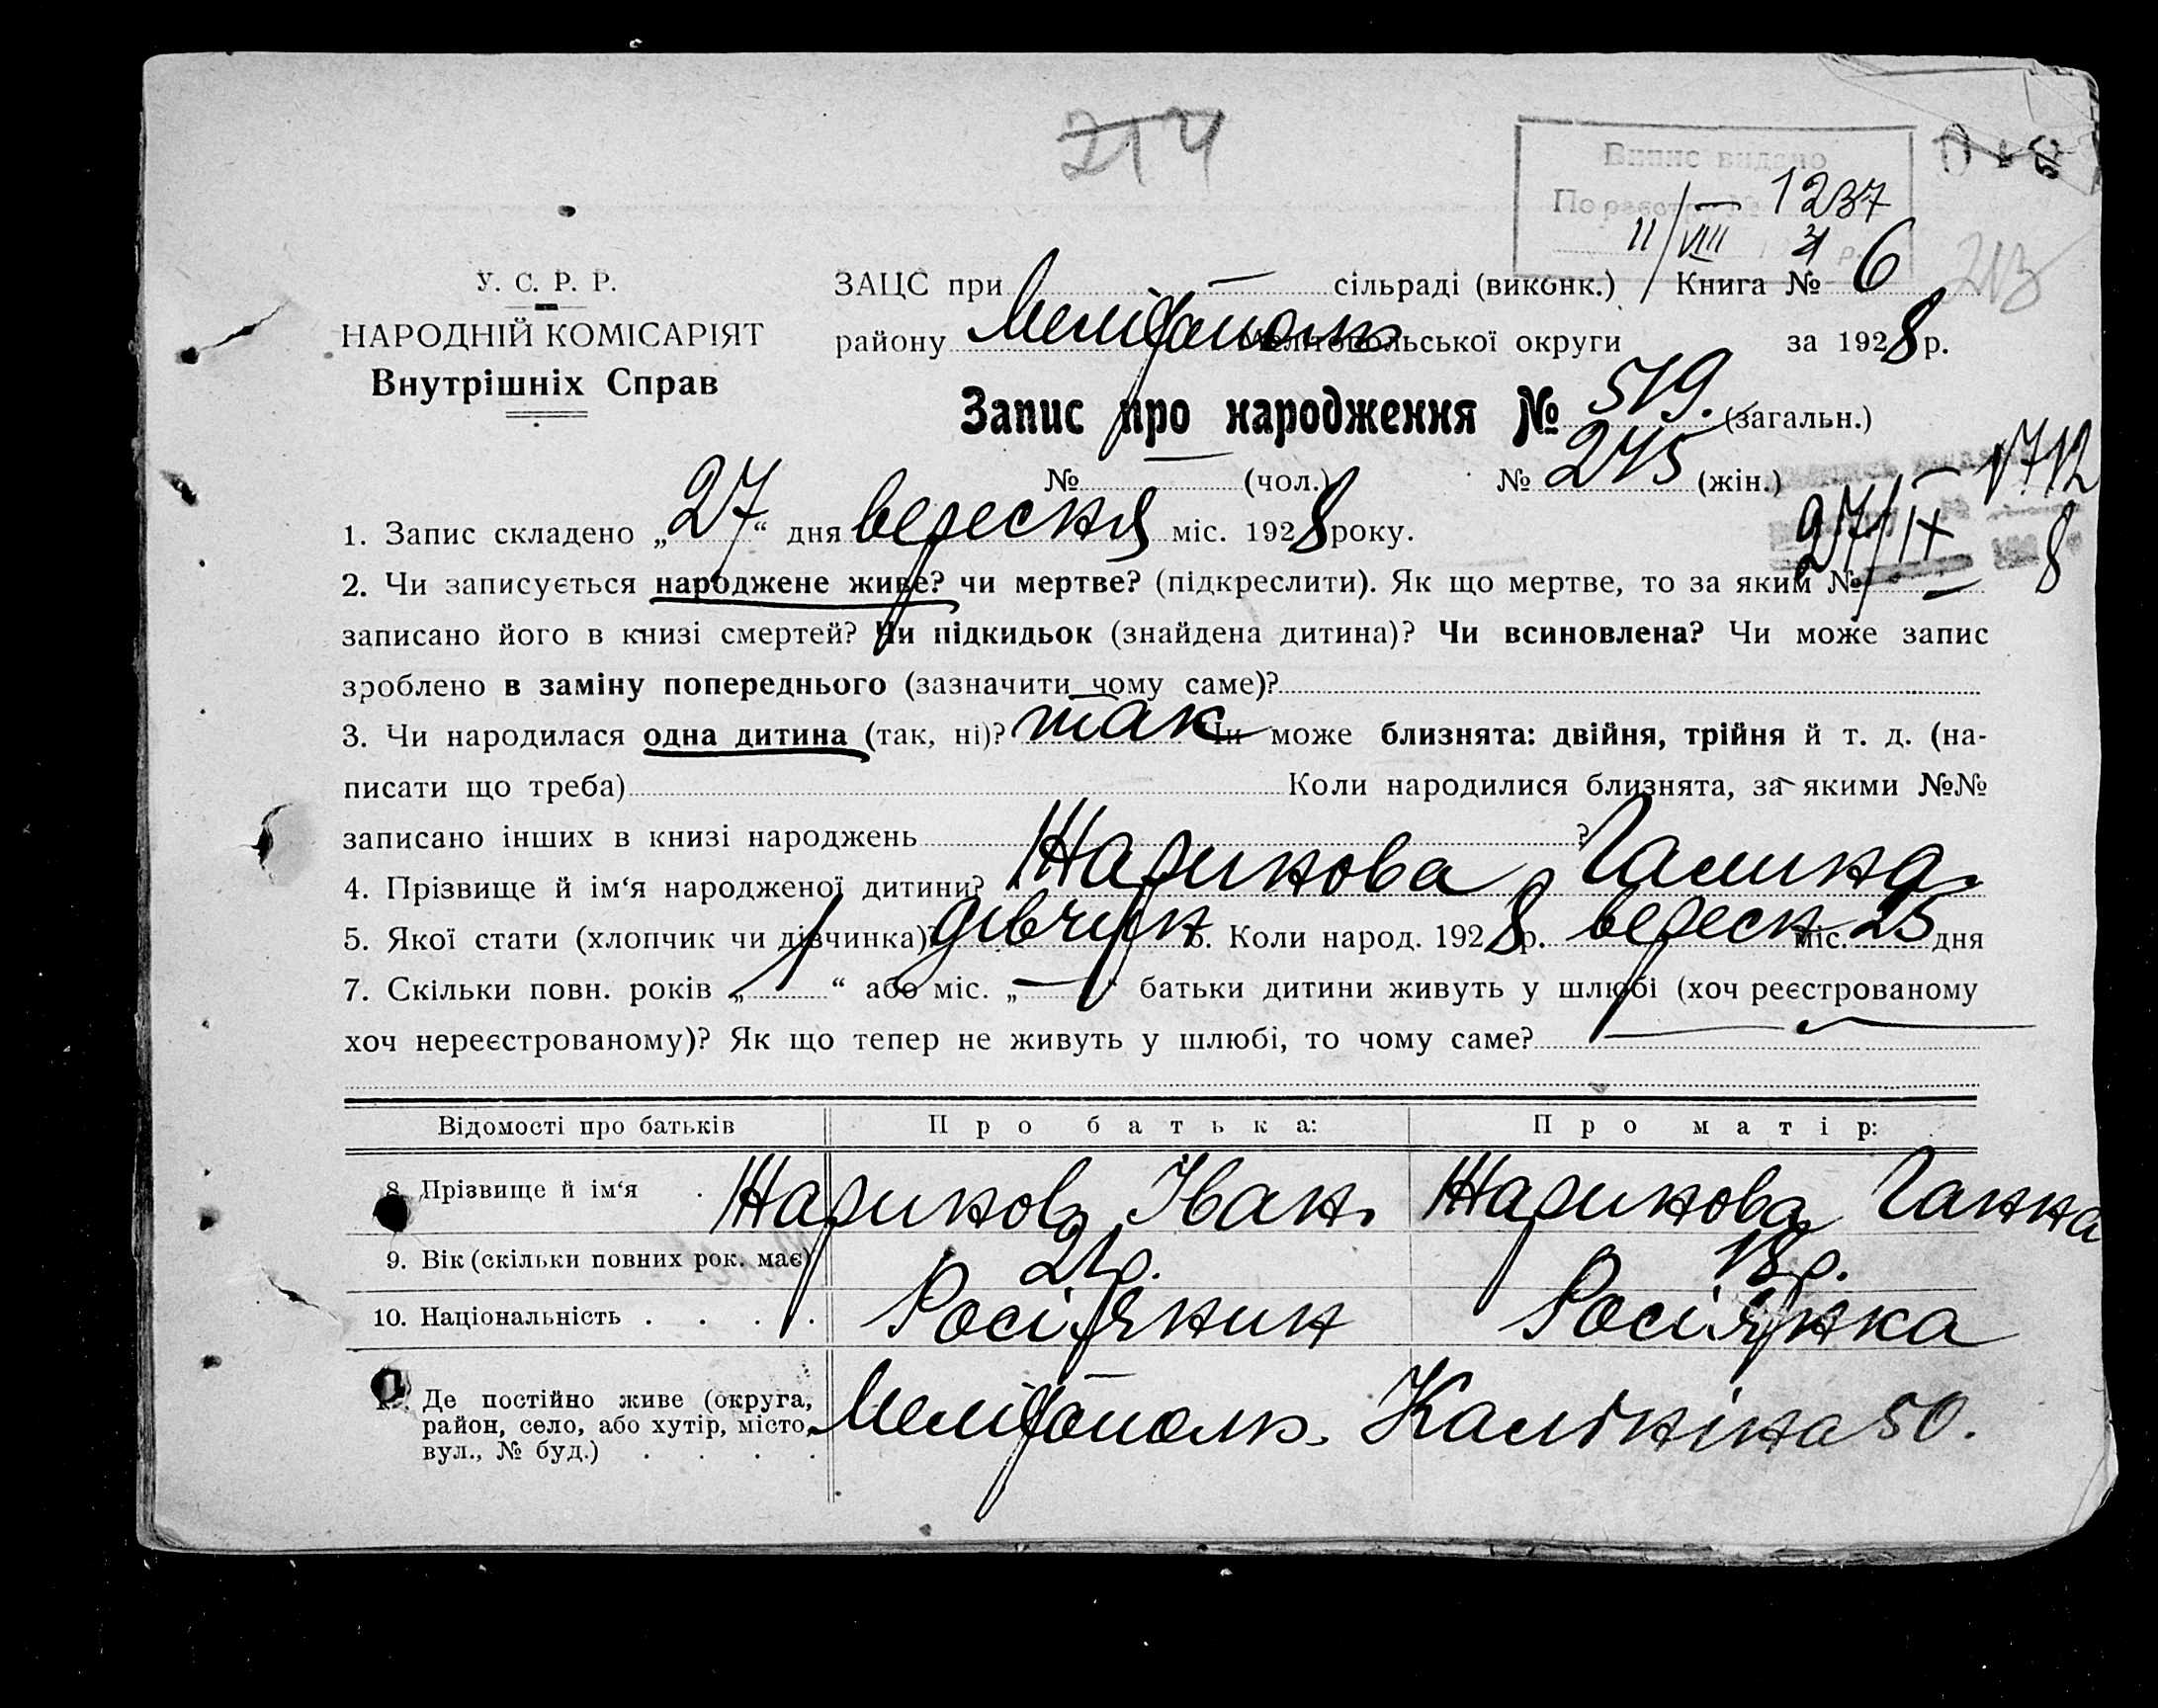 214
Випис видано
По реєстру № — 1237
11/VIII 31 р.
213
У. С. Р. Р.
НАРОДНІЙ КОМІСАРІЯТ
Внутрішніх Справ
ЗАЦС при сільраді (виконк.) Книга № 6
району Мелітополь Мелітопольської округи за 1928 р.
Запис про народження № 519. (загальн.)
№ (чол.) № 245 (жін.)
— 1712
27/IX 8
1. Запис складено „27“ дня вересня міс. 1928 року.
2. Чи записується народжене живе? чи мертве? (підкреслити). Як що мертве, то за яким №
записано його в книзі смертей? Чи підкидьок (знайдена дитина)? Чи всиновлена? Чи може запис
зроблено в заміну попереднього (зазначити чому саме)?
3. Чи народилася одна дитина (так, ні)? так Чи може близнята: двійня, трійня й т. д. (на-
писати що треба) Коли народилися близнята, за якими №№
записано інших в книзі народжень ?
4. Прізвище й ім‘я народженої дитини? Жарикова Галина.
5. Якої стати (хлопчик чи дівчинка)? дівчин 6. Коли народ. 1928 р. вересн міс. 25 дня
7. Скільки повн. років „1“ або міс. „—“ батьки дитини живуть у шлюбі (хоч реєстрованому
хоч нереєстрованому)? Як що тепер не живуть у шлюбі, то чому саме?
Відомості про батьків Про батька: Про матір:
8. Прізвище й ім‘я . Жариков Іван. Жарикова Ганна
9. Вік (скільки повних рок. має) 21 р. 18 р.
10. Національність . . . . Росіянин Росіянка
Де постійно живе (округа,
район, село, або хутір, місто, Мелітополь. Калініна 50.
вул., № буд.) . . . .